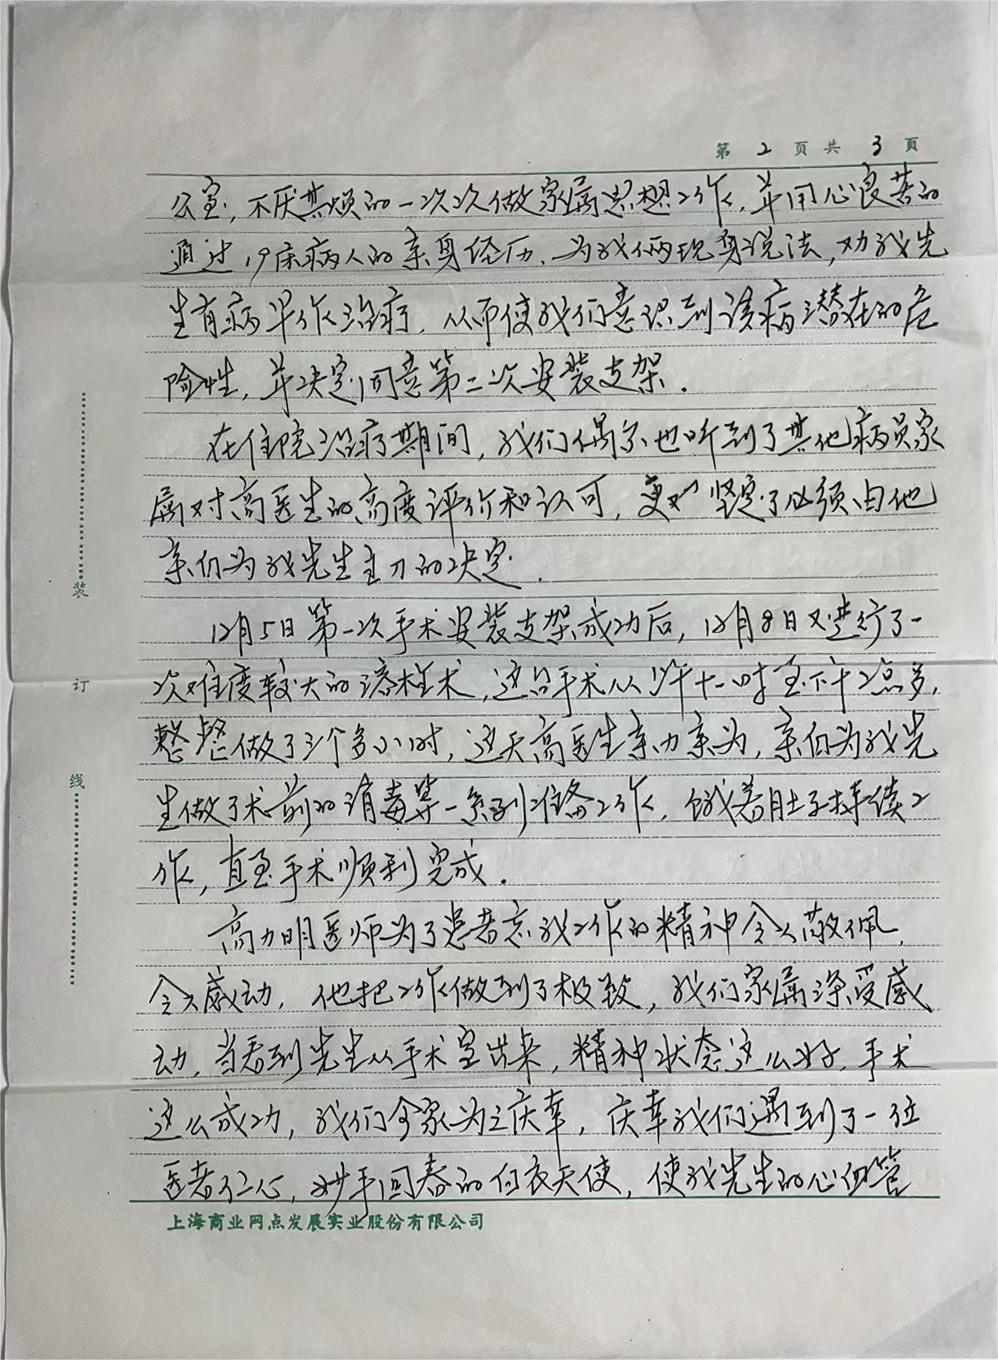 第 2 页 共 3 頁
公室，不厌其烦的一次次做家属思想工作，并用心良苦的
通过19床病人的亲身经历，为我俩现身说法，劝我先
生有病早作治疗，从而使我们意识到该病潜在的危
险性，并决定同意第二次安装支架．
在住院治疗期间，我们偶尔也听到了其他病员家
属对高医生的高度评价和认可，更加坚定了必须由他
亲自为我先生主刀的决定．
12月5日第一次手术安装支架成功后，12月8日又进行了一
次难度较大的溶栓术，这台手术从上午十一时至下午2点多，
整整做了3个多小时，这天高医生亲力亲为，亲自为我先
生做了术前的消毒等一系列准备工作，饿着肚子持续工
作，直至手术顺利完成．
高力明医师为了患者忘我工作的精神令人敬佩，
令人感动，他把工作做到了极致，我们家属深受感
动，当看到先生从手术室出来，精神状态这么好，手术
这么成功，我们全家为之庆幸，庆幸我们遇到了一位
医者仁心，妙手回春的白衣天使，使我先生的心血管
上海商业网点发展实业股份有限公司
装
订
线